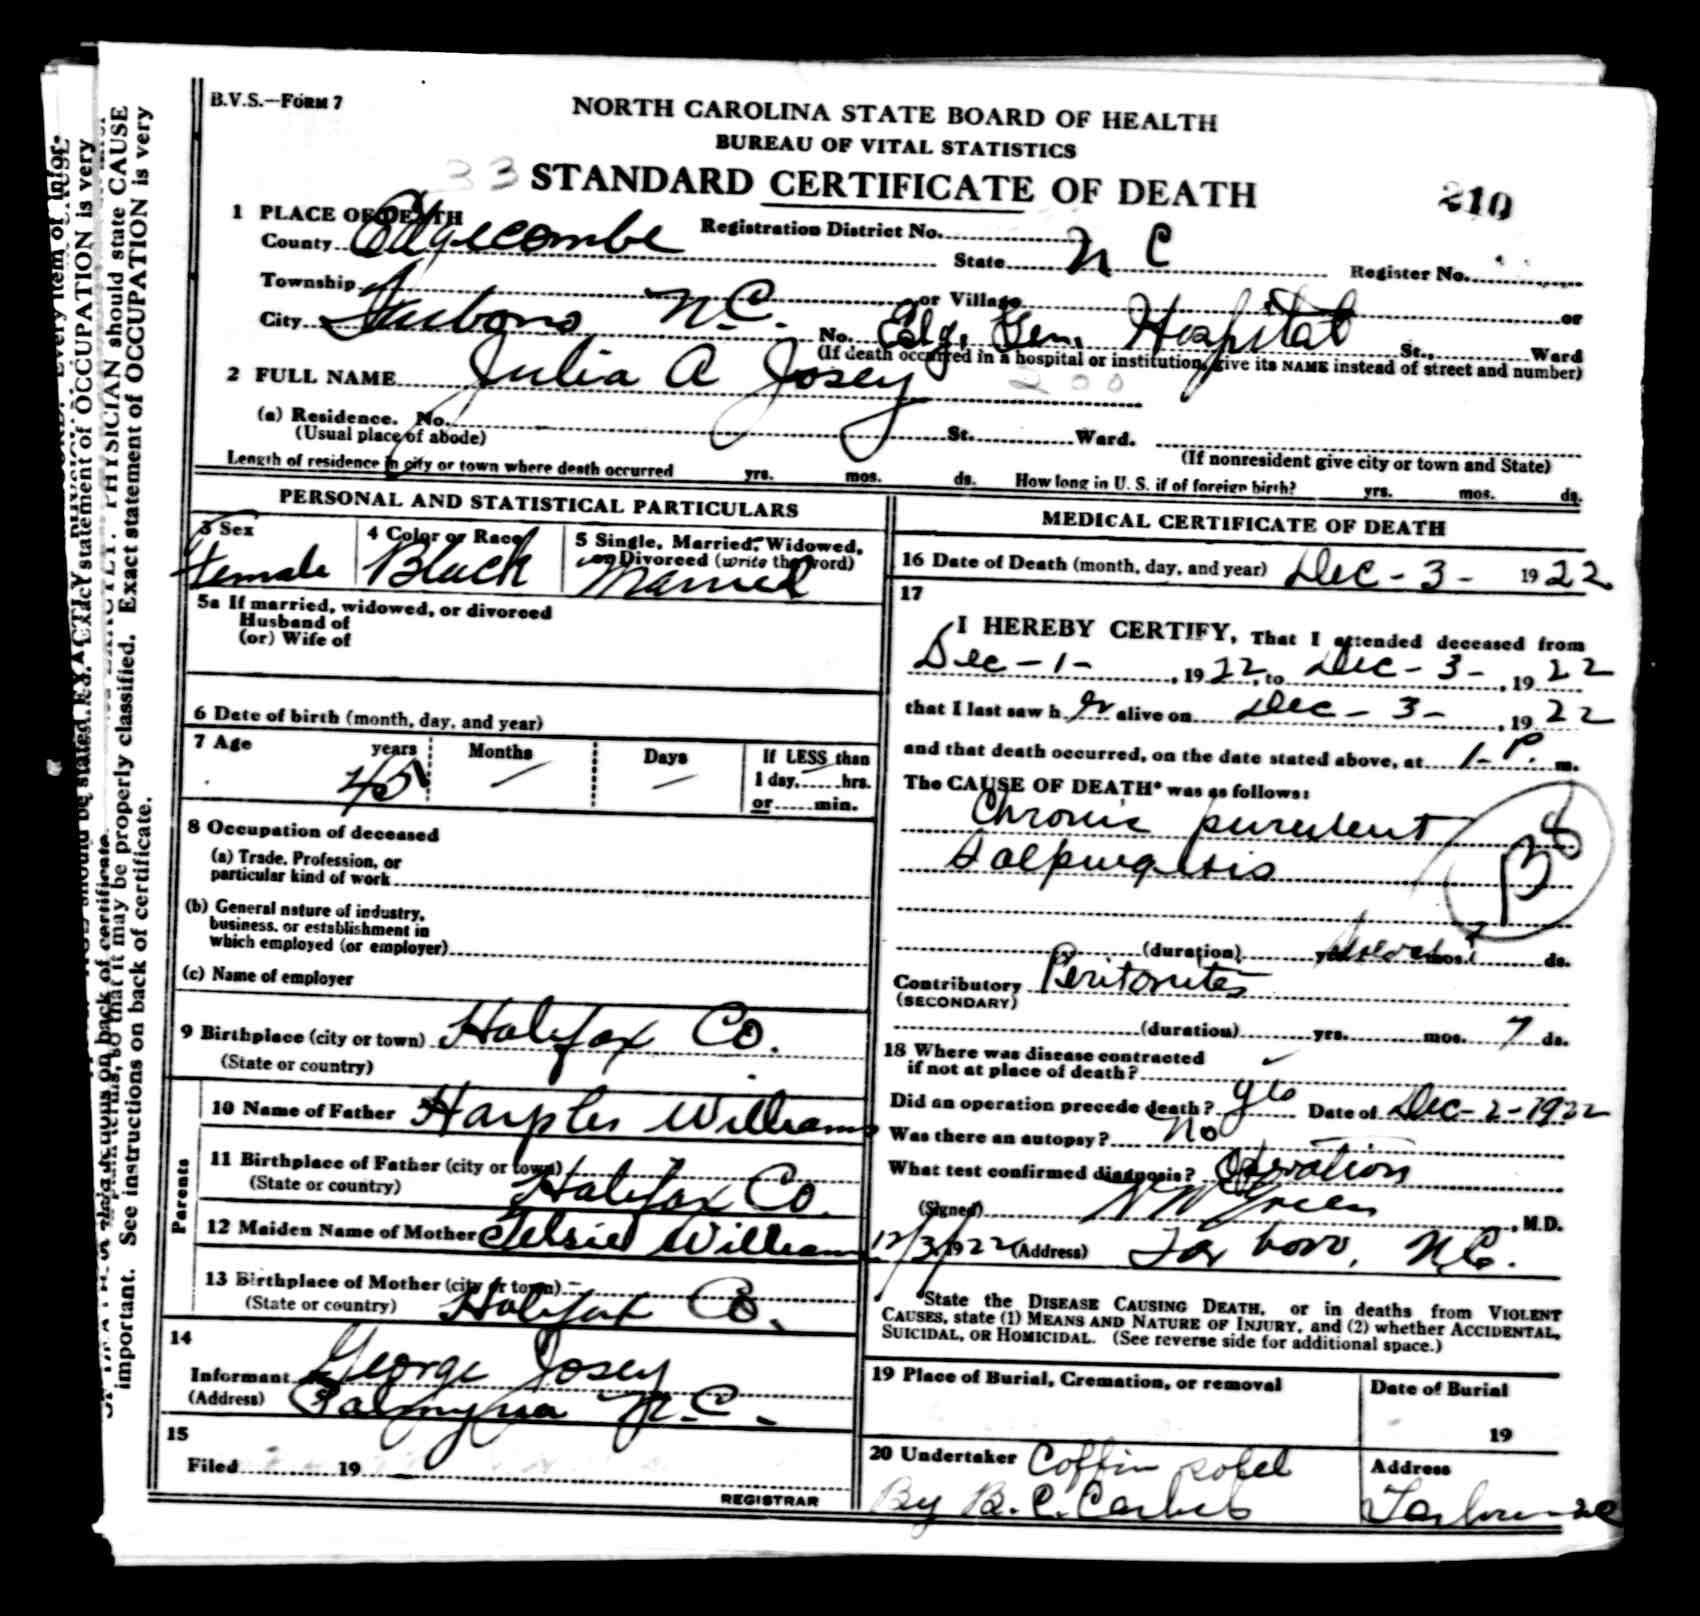 B.V.S.—FORM 7
NORTH CAROLINA STATE BOARD OF HEALTH
BUREAU OF VITAL STATISTICS
33 STANDARD CERTIFICATE OF DEATH
210
1 PLACE OF DEATH
Registration District No.
County Edgecombe State N C Register No.
Township or Village or
City Tarboro N.C. No. Edg. Gen. Hospital St., Ward
(If death occurred in a hospital or institution, give its NAME instead of street and number)
2 FULL NAME Julia A Josey 200
(a) Residence. No. St. Ward.
(Usual place of abode) (If nonresident give city or town and State)
Length of residence in city or town where death occurred yrs. mos. ds. How long in U. S. if of foreign birth? yrs. mos. ds.
PERSONAL AND STATISTICAL PARTICULARS
3 Sex Female
4 Color or Race Black
5 Single, Married, Widowed, or Divorced (write the word) Married
5a If married, widowed, or divorced
Husband of
(or) Wife of
6 Date of birth (month, day, and year)
7 Age years Months Days If LESS than
45 — — 1 day, hrs.
or min.
8 Occupation of deceased
(a) Trade, Profession, or
particular kind of work
(b) General nature of industry,
business, or establishment in
which employed (or employer)
(c) Name of employer
9 Birthplace (city or town) Halifax Co.
(State or country)
Parents
10 Name of Father Harples Williams
11 Birthplace of Father (city or town)
(State or country) Halifax Co.
12 Maiden Name of Mother Williams
13 Birthplace of Mother (city or town)
(State or country) Halifax Co.
14
Informant George Josey
(Address) Palmyra N.C.
15
Filed 19
REGISTRAR
MEDICAL CERTIFICATE OF DEATH
16 Date of Death (month, day, and year) Dec - 3 - 1922
17
I HEREBY CERTIFY, That I attended deceased from
Dec - 1 - , 1922, to Dec - 3 - , 1922
that I last saw h er alive on Dec - 3 - , 1922
and that death occurred, on the date stated above, at 1 - P. m.
The CAUSE OF DEATH* was as follows:
Chronic purulent
Salpingitis
(duration) yrs. Several mos. ds.
Contributory Peritonitis
(SECONDARY)
(duration) yrs. mos. 7 ds.
18 Where was disease contracted
if not at place of death?
Did an operation precede death? yes Date of Dec - 2 - 1922
Was there an autopsy? No
What test confirmed diagnosis? Operation
(Signed) W W Green, M.D.
12/3/1922 (Address) Tarboro, N.C.
State the DISEASE CAUSING DEATH, or in deaths from VIOLENT
CAUSES, state (1) MEANS AND NATURE OF INJURY, and (2) whether ACCIDENTAL,
SUICIDAL, OR HOMICIDAL. (See reverse side for additional space.)
19 Place of Burial, Cremation, or removal
Date of Burial
19
20 Undertaker Coffin sold
By B. C.
Address
Tarboro NC
should state CAUSE
important. See instructions on back of certificate.
so that it may be properly classified. Exact statement of OCCUPATION is very